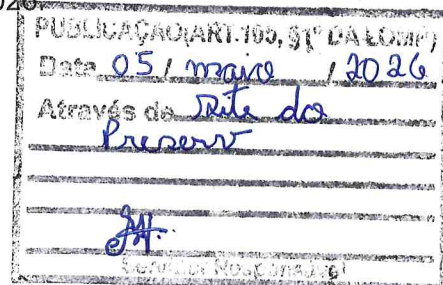 2020.
PUBLICAÇÃO(ART.100, §1º DA LOMP)
Data 05 / maio / 2026
Através do Site do
Preserv
Servidor Responsável